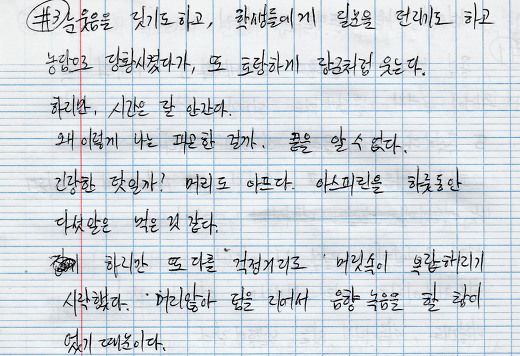 웃음을 짓기도 하고, 학생들에게 질문을 던지기도 하고
농담으로 당황시켰다가, 또 호탕하게 장군처럼 웃는다.
하지만, 시간은 잘 안간다.
왜 이렇게 나는 피곤한 걸까. 끝을 알 수 없다.
긴장한 탓일까? 머리도 아프다. 아스피린을 하룻동안
다섯알은 먹은 것 같다.
하지만 또 다른 걱정거리로 머릿속이 복잡해지기
시작했다. 머지않아 팀을 지어서 음향 녹음을 할 참이
었기 때문이다.